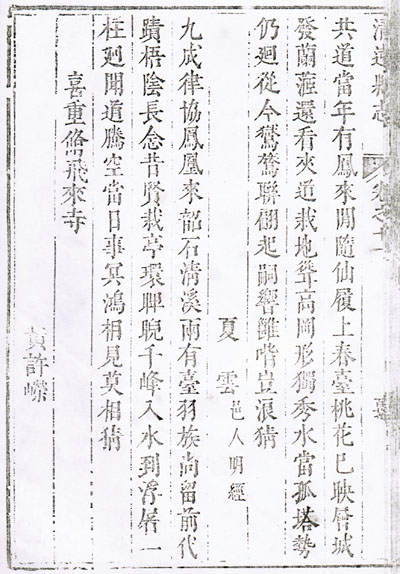 清遠縣志 卷之十
共道當年有鳳來閒隨仙履上春臺桃花已映層城
發蘭茝還看夾道栽地聳高岡形獨秀水當孤塔勢
仍廻從今鸑鷟聯翩起嗣響雝喈豈浪猜
夏雲 邑人明經
九成律協鳳凰來韶石清溪兩有臺羽族尚留前代
蹟梧陰長念昔賢栽亭環睥睨千峰入水到浮屠一
柱廻聞道騰空當日事冥鴻相見莫相猜
喜重脩飛來寺
黃許嶸